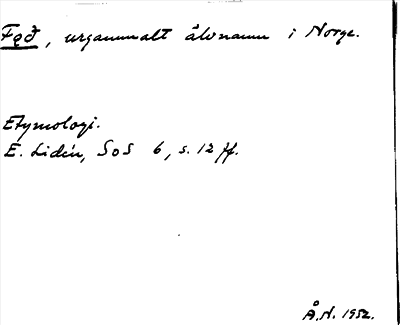 Fǫð, urgammalt älvnamn i Norge.
Etymologi.
E. Lidén, SoS 6, s. 12 ff.
Å.N. 1952.